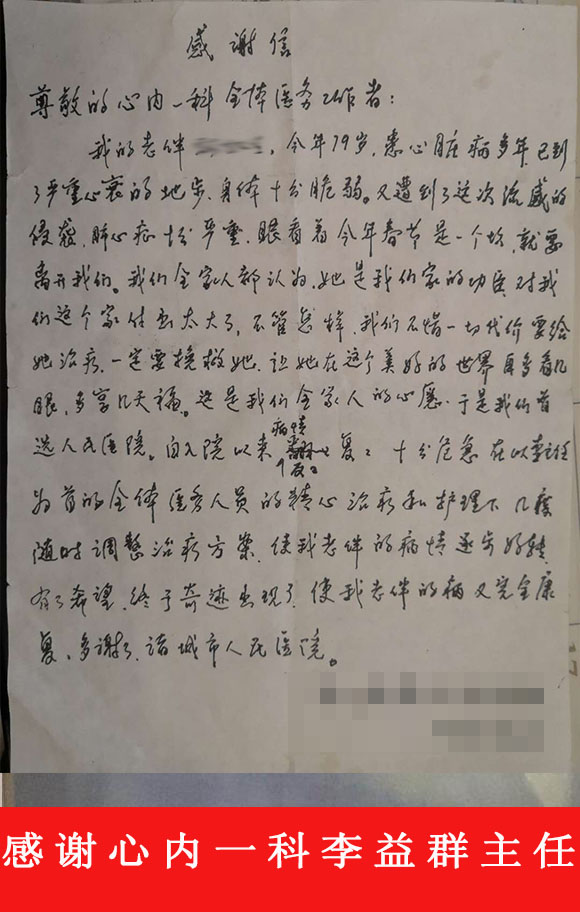 感谢信
尊敬的心内一科全体医务工作者：
我的老伴，今年79岁，患心脏病多年已到
了严重心衰的地步、身体十分脆弱。又遭到了这次流感的
侵袭，肺心症十分严重，眼看着今年春节是一个坎，就要
离开我们。我们全家人都认为，她是我们家的功臣，对我
们这个家付出太大了，不管怎样，我们不惜一切代价要给
她治病，一定要挽救她，让她在这个美好的世界再多看几
眼，多享几天福。这是我们全家人的心愿。于是我们首
选人民医院。自入院以来病情反反复复，十分危急，在以李主任
为首的全体医务人员的精心治疗和护理下，几度
随时调整治疗方案，使我老伴的病情逐步好转，
有了希望，终于奇迹出现了，使我老伴的病又完全康
复，多谢了，诸城市人民医院。
感谢心内一科李益群主任